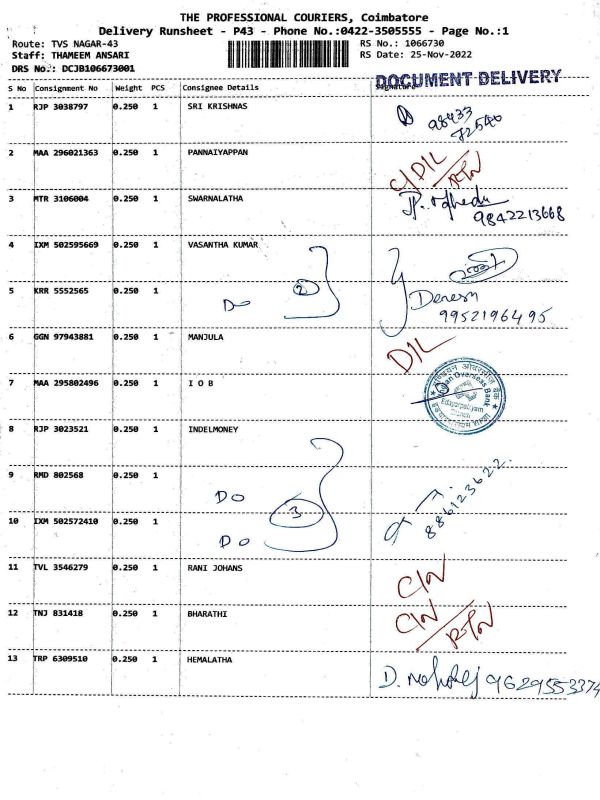 THE PROFESSIONAL COURIERS, Coimbatore
Delivery Runsheet - P43 - Phone No.:0422-3505555 - Page No.:1
Route: TVS NAGAR-43 RS No.: 1066730
Staff: THAMEEM ANSARI RS Date: 25-Nov-2022
DRS No.: DCJB106673001
DOCUMENT DELIVERY
S No Consignment No Weight PCS Consignee Details Signature
1 RJP 3038797 0.250 1 SRI KRISHNAS
98433
72540
2 MAA 296021363 0.250 1 PANNAIYAPPAN
C/DIL
RTN
3 MTR 3106004 0.250 1 SWARNALATHA
9842213668
4 IXM 502595669 0.250 1 VASANTHA KUMAR
2
5 KRR 5552565 0.250 1
Do
9952196495
6 GGN 97943881 0.250 1 MANJULA
D/L
7 MAA 295802496 0.250 1 I O B
Indian Overseas Bank
8 RJP 3023521 0.250 1 INDELMONEY
9 RMD 802568 0.250 1
Do
3
886123622
10 IXM 502572410 0.250 1
Do
11 TVL 3546279 0.250 1 RANI JOHANS
C/N
12 TNJ 831418 0.250 1 BHARATHI
C/N
RTN
13 TRP 6309510 0.250 1 HEMALATHA
9629553374